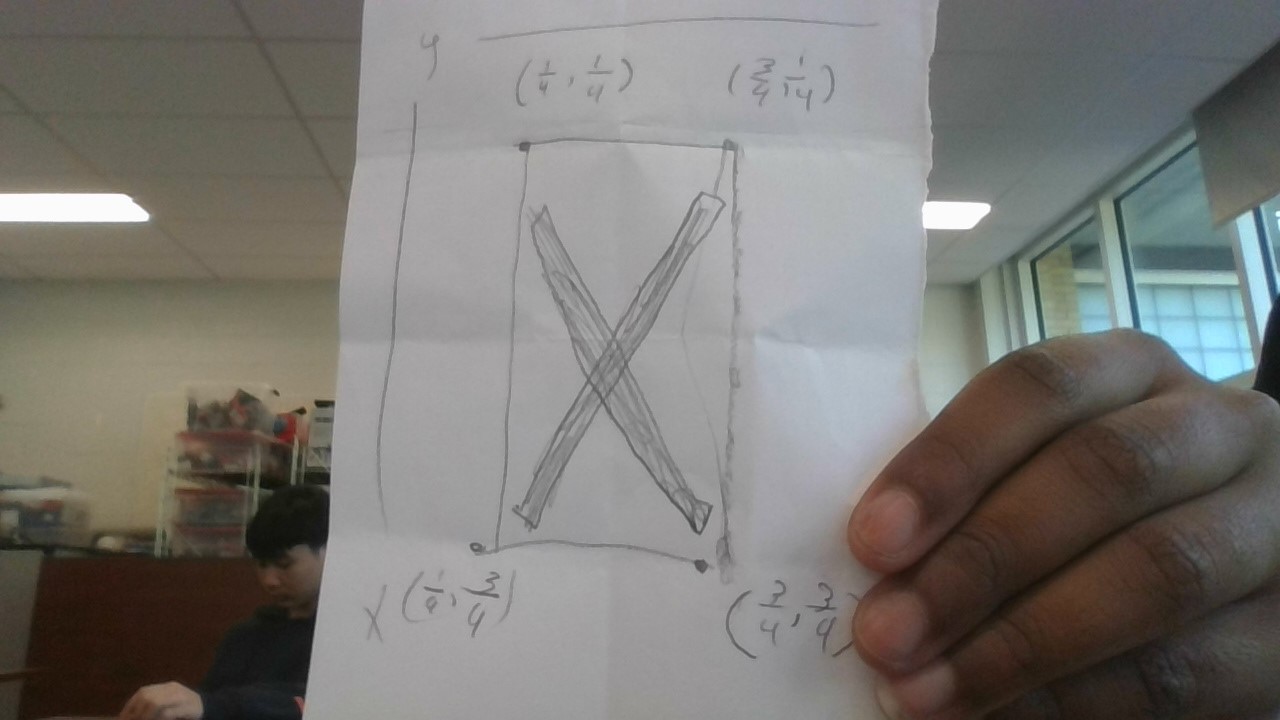 y
(1/4, 1/4) (3/4, 1/4)
X (1/4, 3/4) (3/4, 3/4)